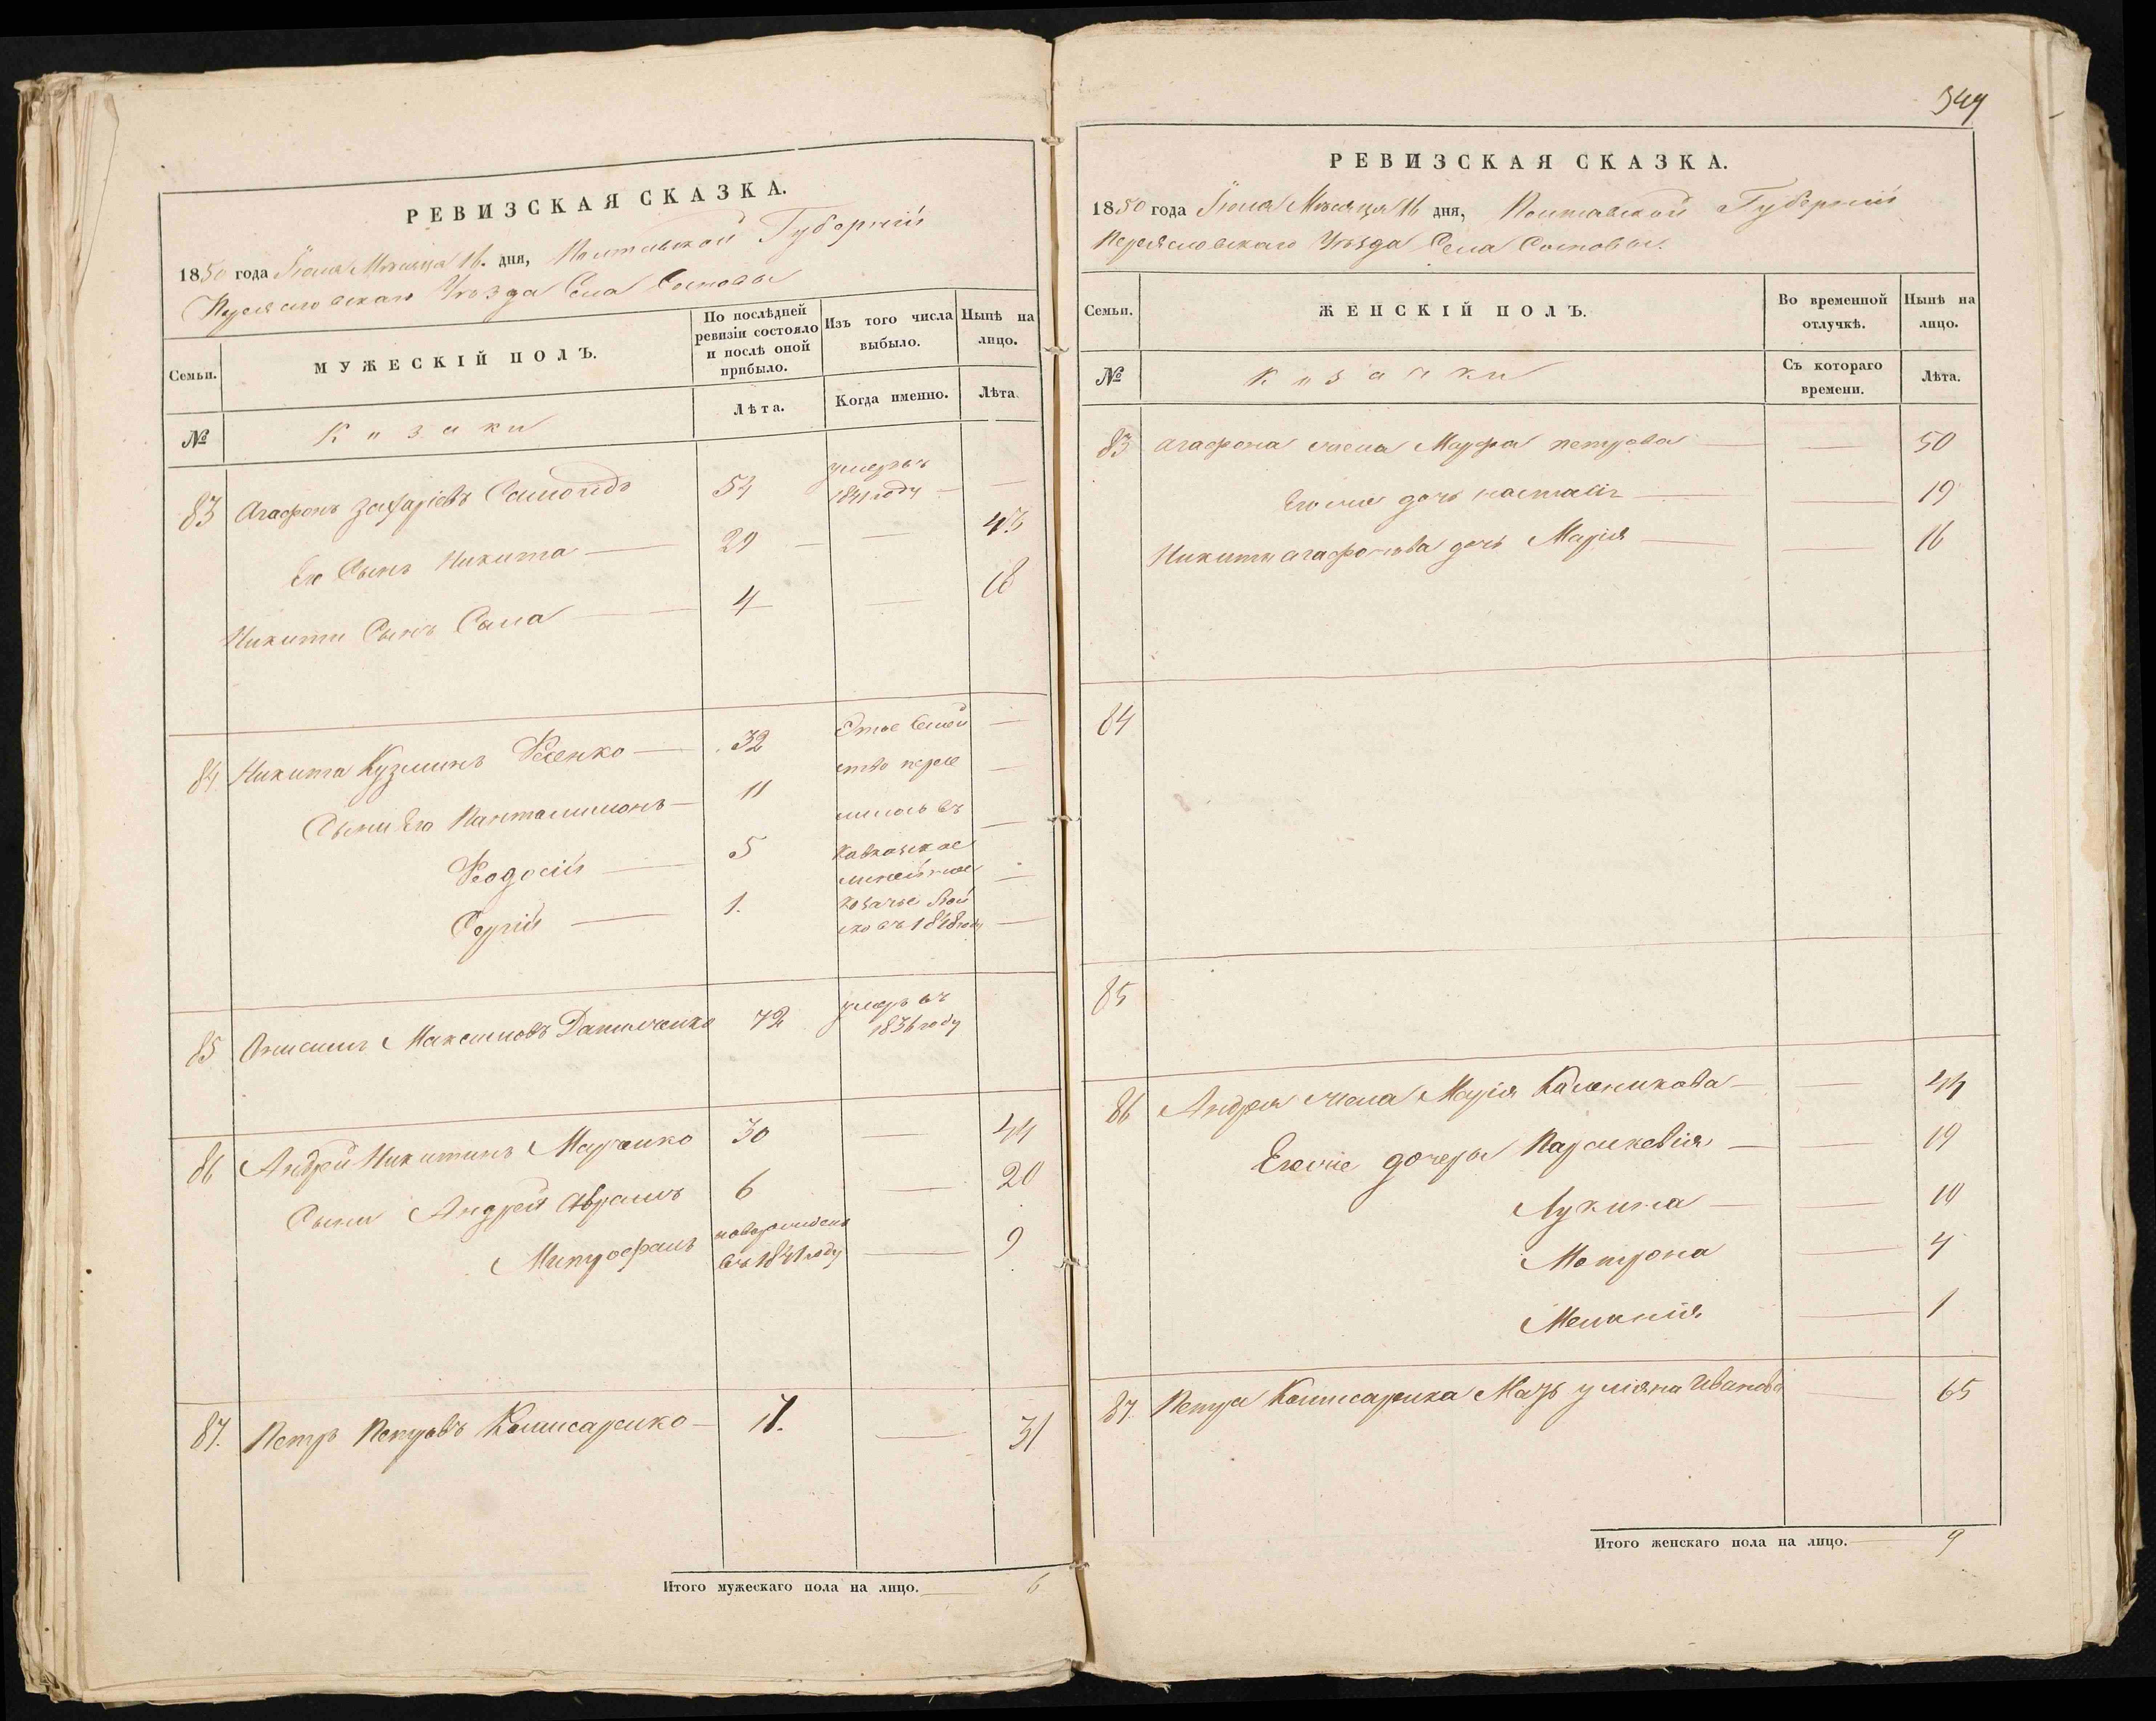 РЕВИЗСКАЯ СКАЗКА.
1850 года Іюля Месяца 16. дня, Полтавской Губерніи
Переясловскаго Уезда Села Сосновы
Семьи. МУЖЕСКІЙ ПОЛЪ. По послѣдней ревизіи состояло и послѣ оной прибыло. Изъ того числа выбыло. Нынѣ на лицо.
№ Козаки Лѣта. Когда именно. Лѣта.
83 Агафонъ Захаріевъ 54 умеръ въ 1841 году —
Его Сынъ Никита — 29 — 43
Никиты Сынъ Сава — 4 — 18
84 Никита Кузминъ Фесенко — 32 Етое Семей —
Сыны Его Панталимонъ — 11 ство пересе —
Феодосій — 5 лилось въ —
Кавказское
линейное —
Сергій — 1. козачье Вой
ско въ 1848 году —
85 Онисимъ Максимовъ Данилченко 72 умеръ въ
1836 году
86 Андрей Никитинъ Марченко 30 — 44
Сыны Андрея Аврамъ 6 — 20
Митрофанъ новорожденъ
въ 1841 году — 9
87. Петръ Петровъ Комисаренко — 17. — 31
Итого мужескаго пола на лицо. — 6
344
РЕВИЗСКАЯ СКАЗКА.
1850 года Іюля Месяца 16 дня, Полтавской Губерніи
Переясловскаго Уезда Села Сосновы.
Семьи. ЖЕНСКІЙ ПОЛЪ. Во временной отлучкѣ. Нынѣ на лицо.
№ Козачки Съ котораго времени. Лѣта.
83 Агафона жена Марфа Петрова — — 50
Его же дочь Наталія — — 19
Никиты Агафонова дочь Марія — — 16
84
85
86 Андрея жена Марія Каленикова — — 44
Его же дочеры Параскевія — — 19
Лукина — — 10
Мотрона — 4
Меланія — 1
87. Петра Комисаренка Мать Уліяна Иванова — 65
Итого женскаго пола на лицо. — 9